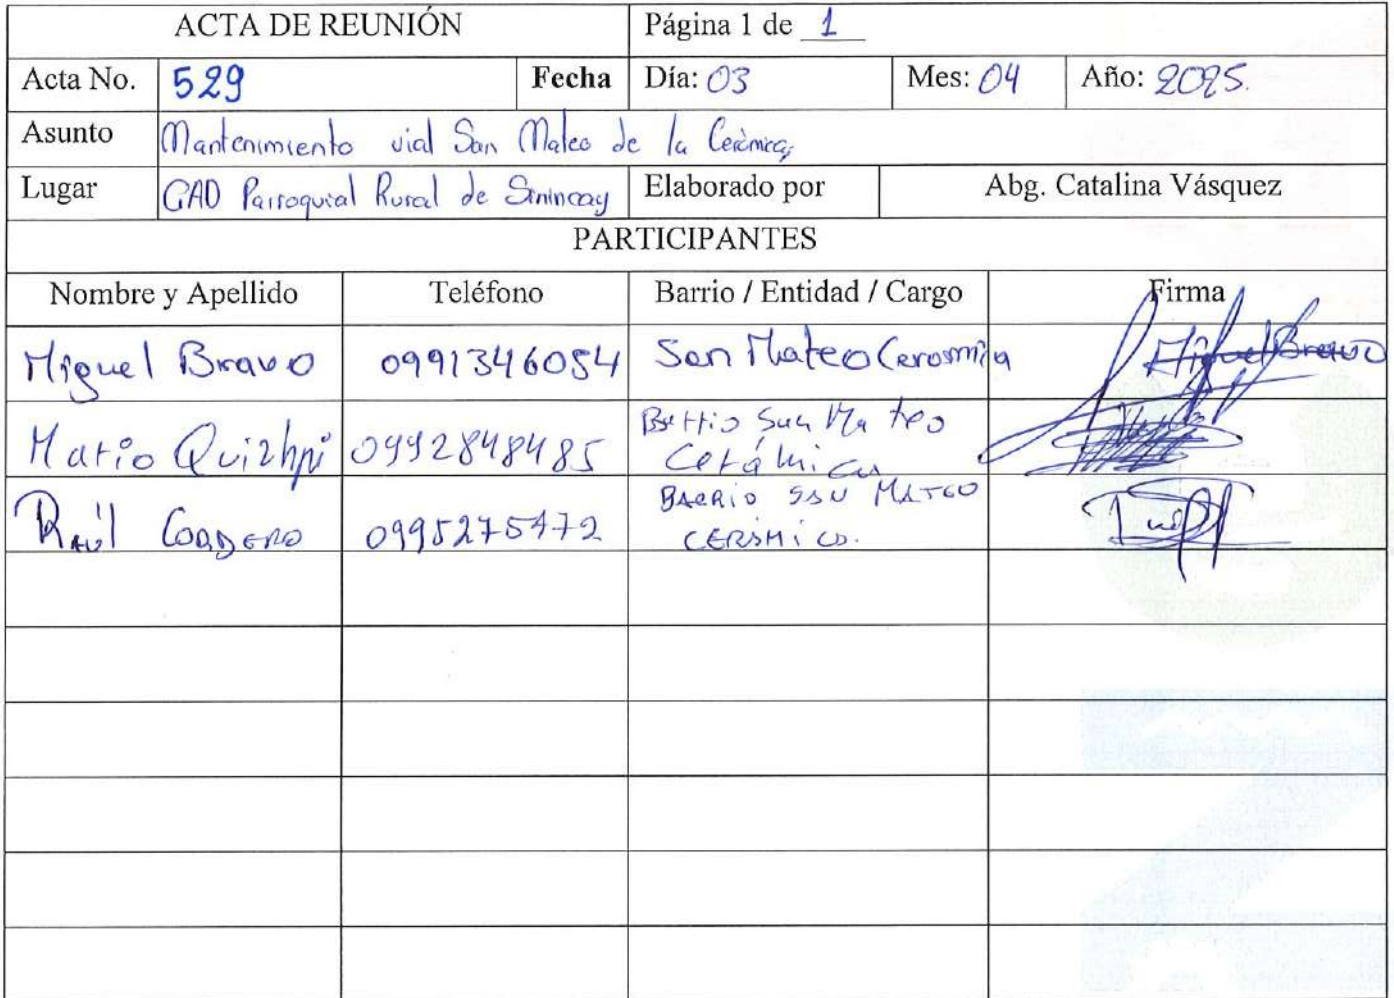 ACTA DE REUNIÓN Página 1 de 1
Acta No. 529 Fecha Día: 03 Mes: 04 Año: 2025.
Asunto Mantenimiento vial San Mateo de la Cerámica
Lugar GAD Parroquial Rural de Sinincay Elaborado por Abg. Catalina Vásquez
PARTICIPANTES
Nombre y Apellido Teléfono Barrio / Entidad / Cargo Firma
Miguel Bravo 0991346054 San Mateo Ceramica Miguel Bravo
Mario Quizhpi 0992848485 Barrio San Mateo
Cerámica
Raúl Cordero 0995275472 BARRIO SAN MATEO
CERAMICO.